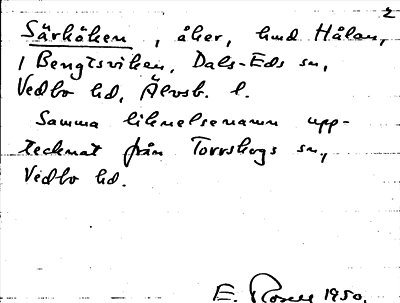 2
Särköken, åker, hmd Hålan,
1 Bengtsviken, Dals-Eds sn,
Vedbo hd, Älvsb. l.
Samma liknelsenamn upp-
tecknat från Torrskogs sn,
Vedbo hd.
E. Rosell 1950.